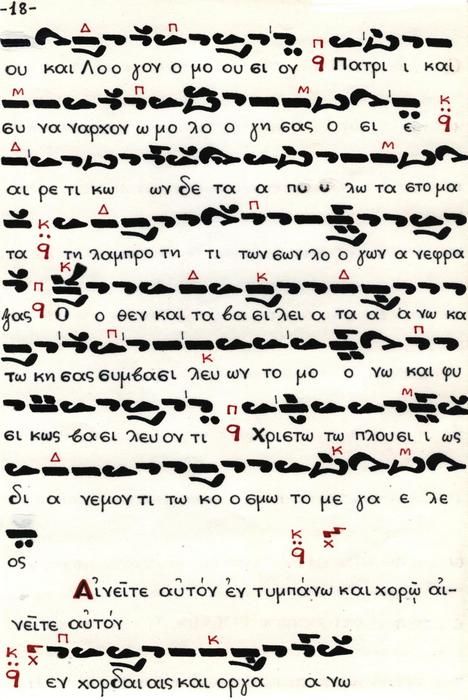 -18-
ου και Λο ο γον ο μο ου σι ον Πατρι ι και
συ να ναρχον ω μο λο ο γη σας ο σι ε
αι ρε τι κω ων δε τα α πυ υ λω τα στο μα
τα τη λαμπρο τη τι των σων λο ο γων α νεφρα
ξας Ο ο θεν και τα βα σι λει α τα α α νω κα
τω κη σας συμβασι λευ ων το μο ο νω και φυ
σι κως βασι λευ ον τι Χριστω τω πλουσι ι ως
δι α νεμον τι τω κο ο σμω το με γα ε λε
ος
Αἰνεῖτε αὐτόν ἐν τυμπάνω και χορῷ αἰ-
νεῖτε αὐτόν
εν χορδαι αις και οργα α νω